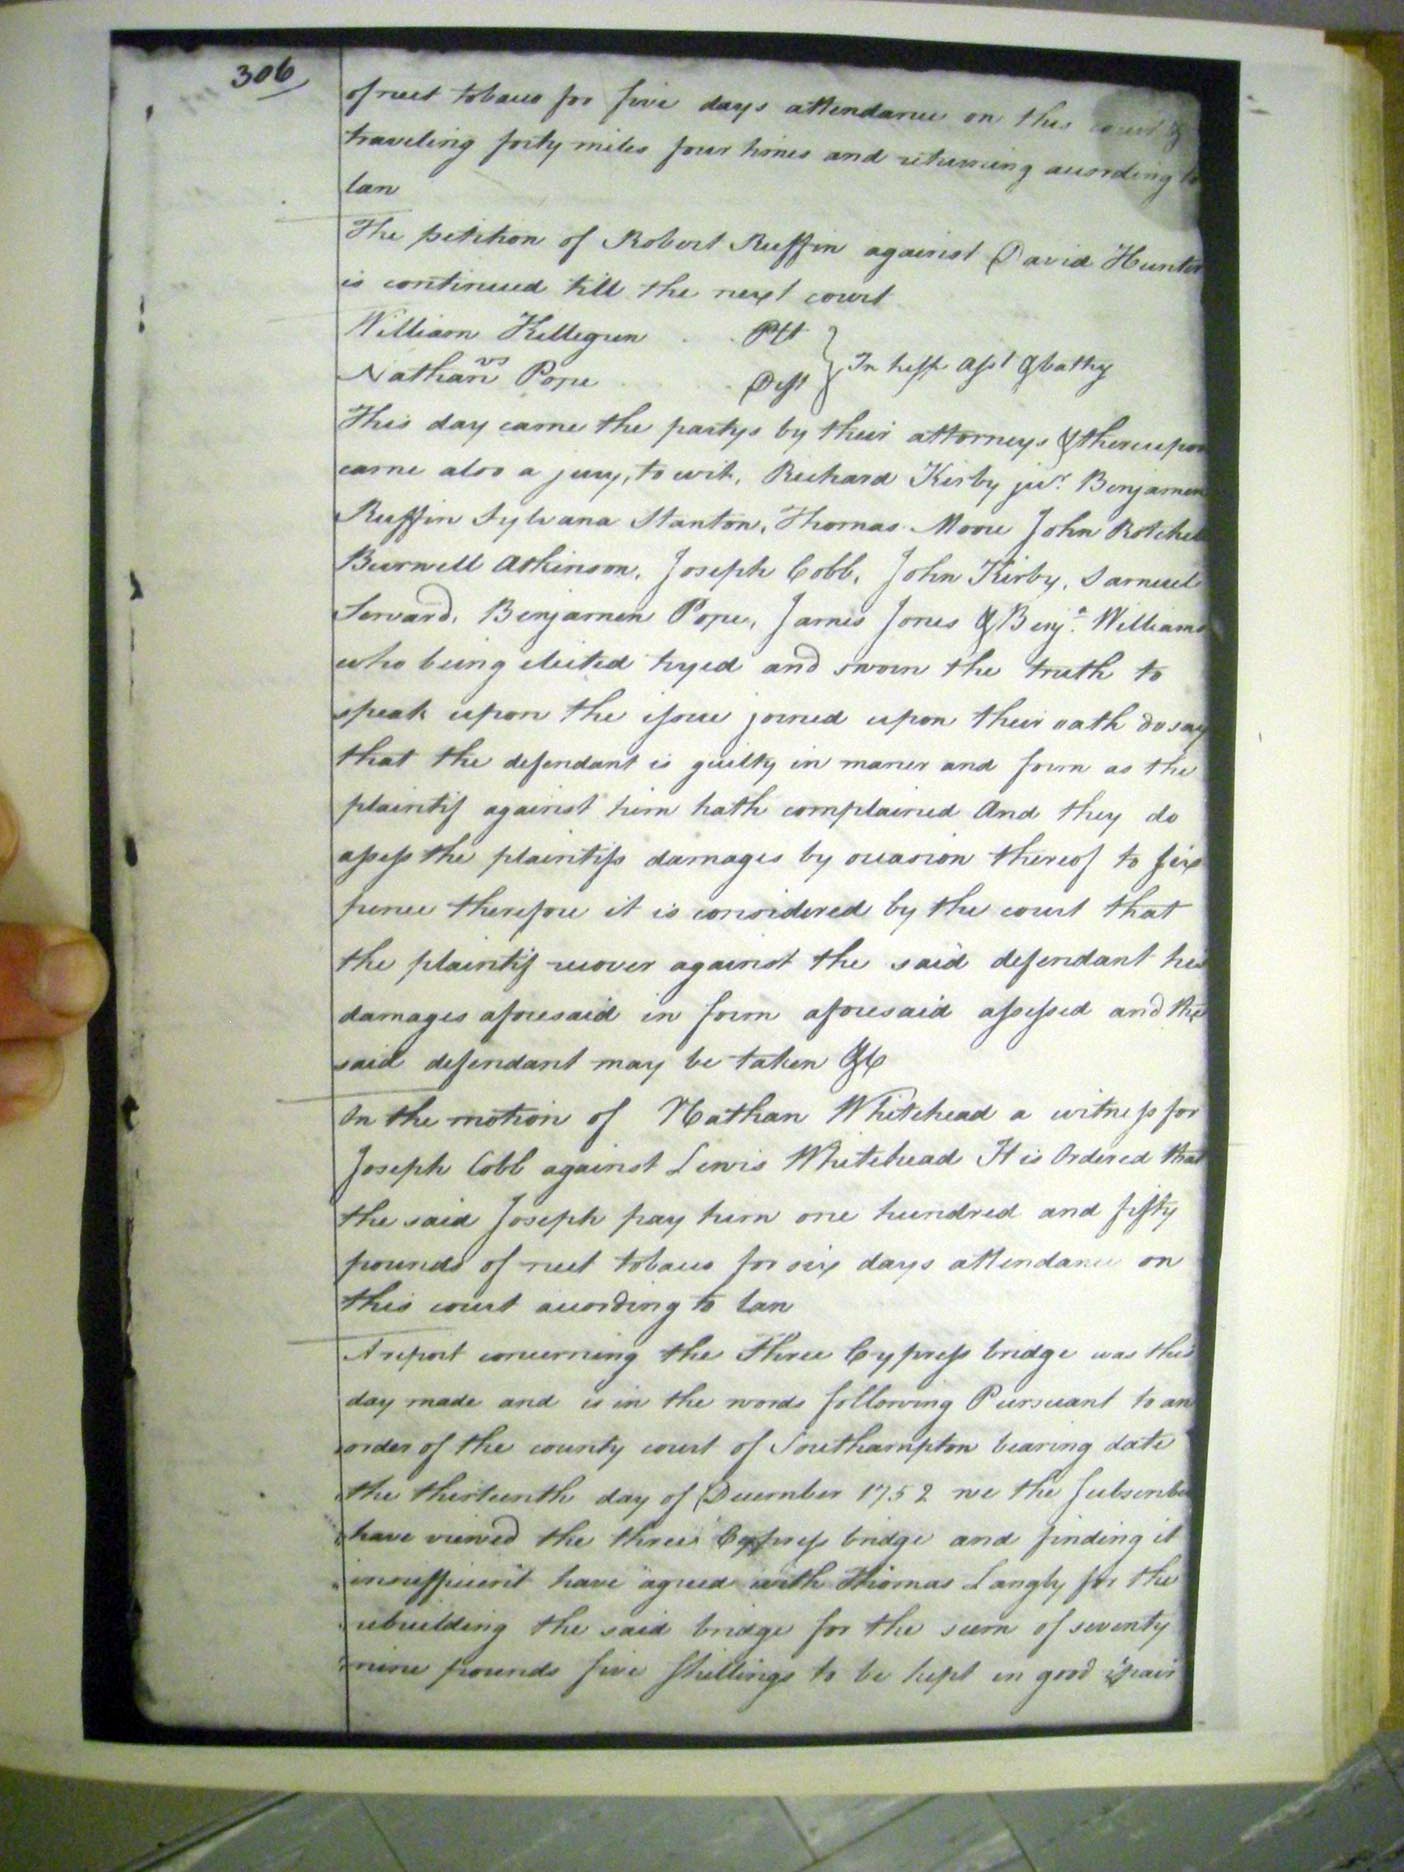 306
of neet tobacco for five days attendance on this court &
traveling forty miles four times and returning according to
law
The petition of Robert Ruffin against David Hunter
is continued till the next court
William Killegrew Plt
vs
Nathan Pope Deft
In tresp. Asst & battry
This day came the partys by their attorneys & thereupon
came also a jury, to wit, Richard Kirby jur. Benjamen
Ruffin Sylvana Stanton, Thomas Moore John Rotchel
Burwell Atkinson, Joseph Cobb, John Kirby, Samuel
Seward, Benjamen Pope, James Jones & Benja. Williams
who being elected tryed and sworn the truth to
speak upon the issue joined upon their oath do say
that the defendant is guilty in maner and form as the
plaintif against him hath complained And they do
assess the plaintifs damages by occasion thereof to six
pence therefore it is considered by the court that
the plaintif recover against the said defendant his
damages aforesaid in form aforesaid assessed and the
said defendant may be taken &c
On the motion of Nathan Whitehead a witness for
Joseph Cobb against Lewis Whitehead It is Ordered that
the said Joseph pay him one hundred and fifty
pounds of neet tobacco for six days attendance on
this court according to law
A report concerning the Three Cypress bridge was this
day made and is in the words following Pursuant to an
order of the county court of Southampton bearing date
the thirteenth day of December 1752 we the Subscribe
have viewed the three Cypress bridge and finding it
insufficient have agreed with Thomas Langly for the
rebuilding the said bridge for the sum of seventy
nine pounds five Shillings to be kept in good repair